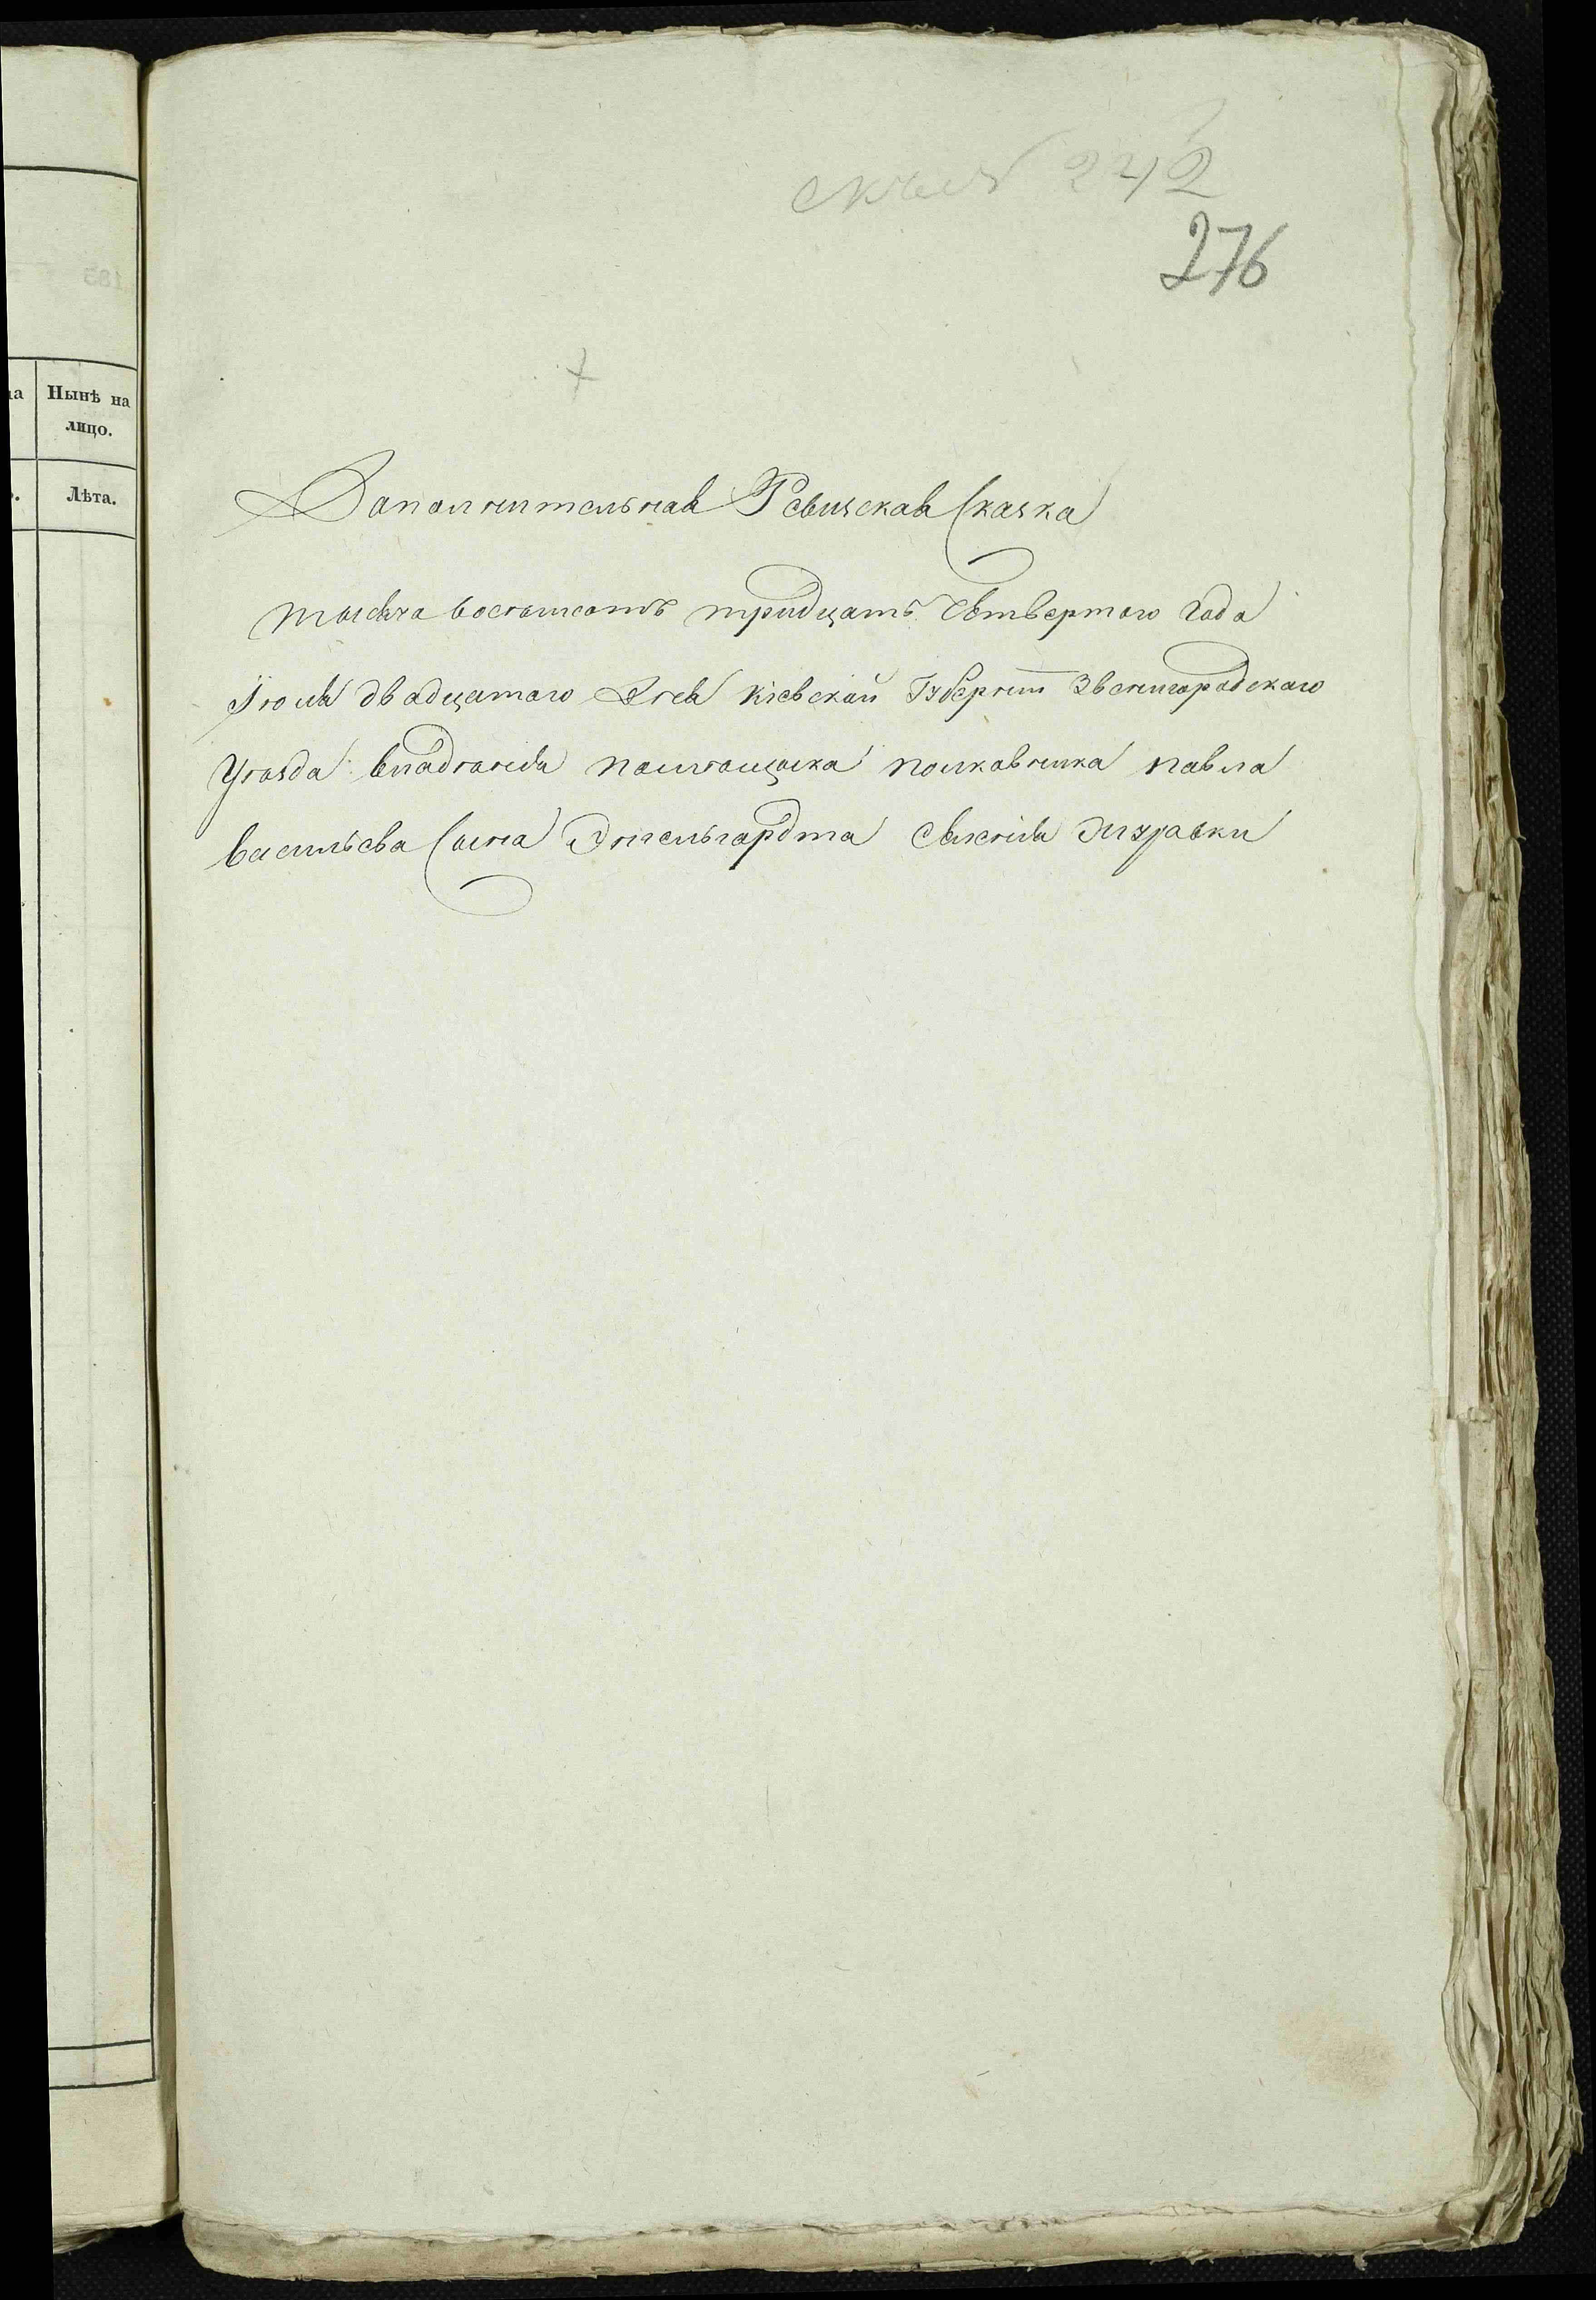 242
276
на Нынѣ на
лицо.
Лѣта.
Дополнительная Ревизская Сказка
тысяча восемьсотъ тридцать Четвертого Года
Іюля двадцатого Дня Кіевской Губерніи Звенигородскаго
Уезда владенія помещика полковника павла
васильева Сына Энгельгардта Селенія